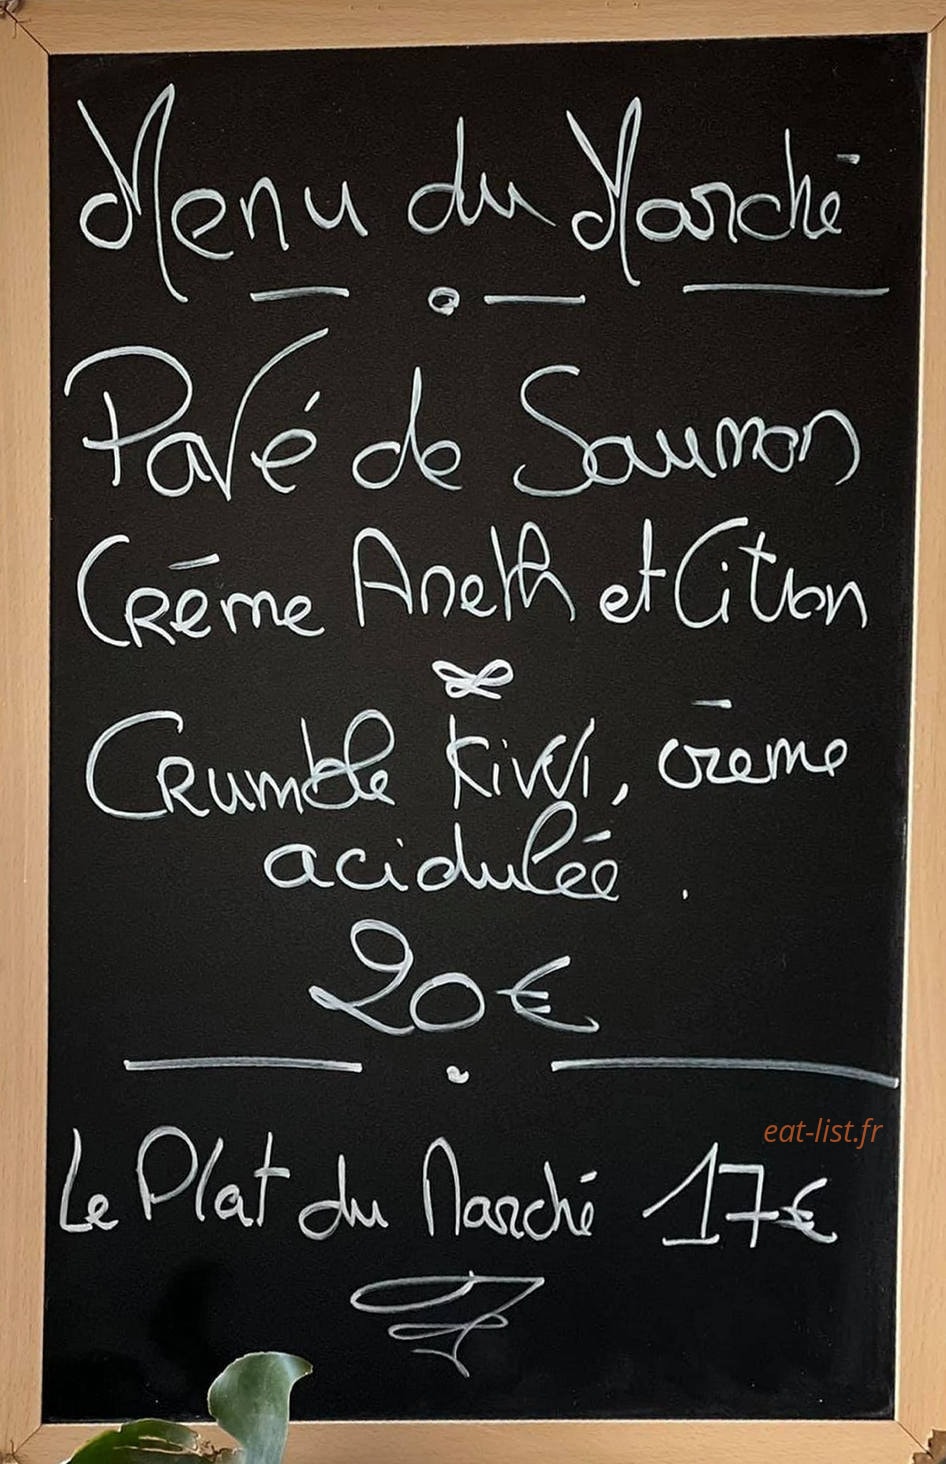 Menu du Marché
Pavé de Saumon
Crème Aneth et Citron
Crumble Kiwi, crème
acidulée.
20€
eat-list.fr
Le Plat du Marché 17€